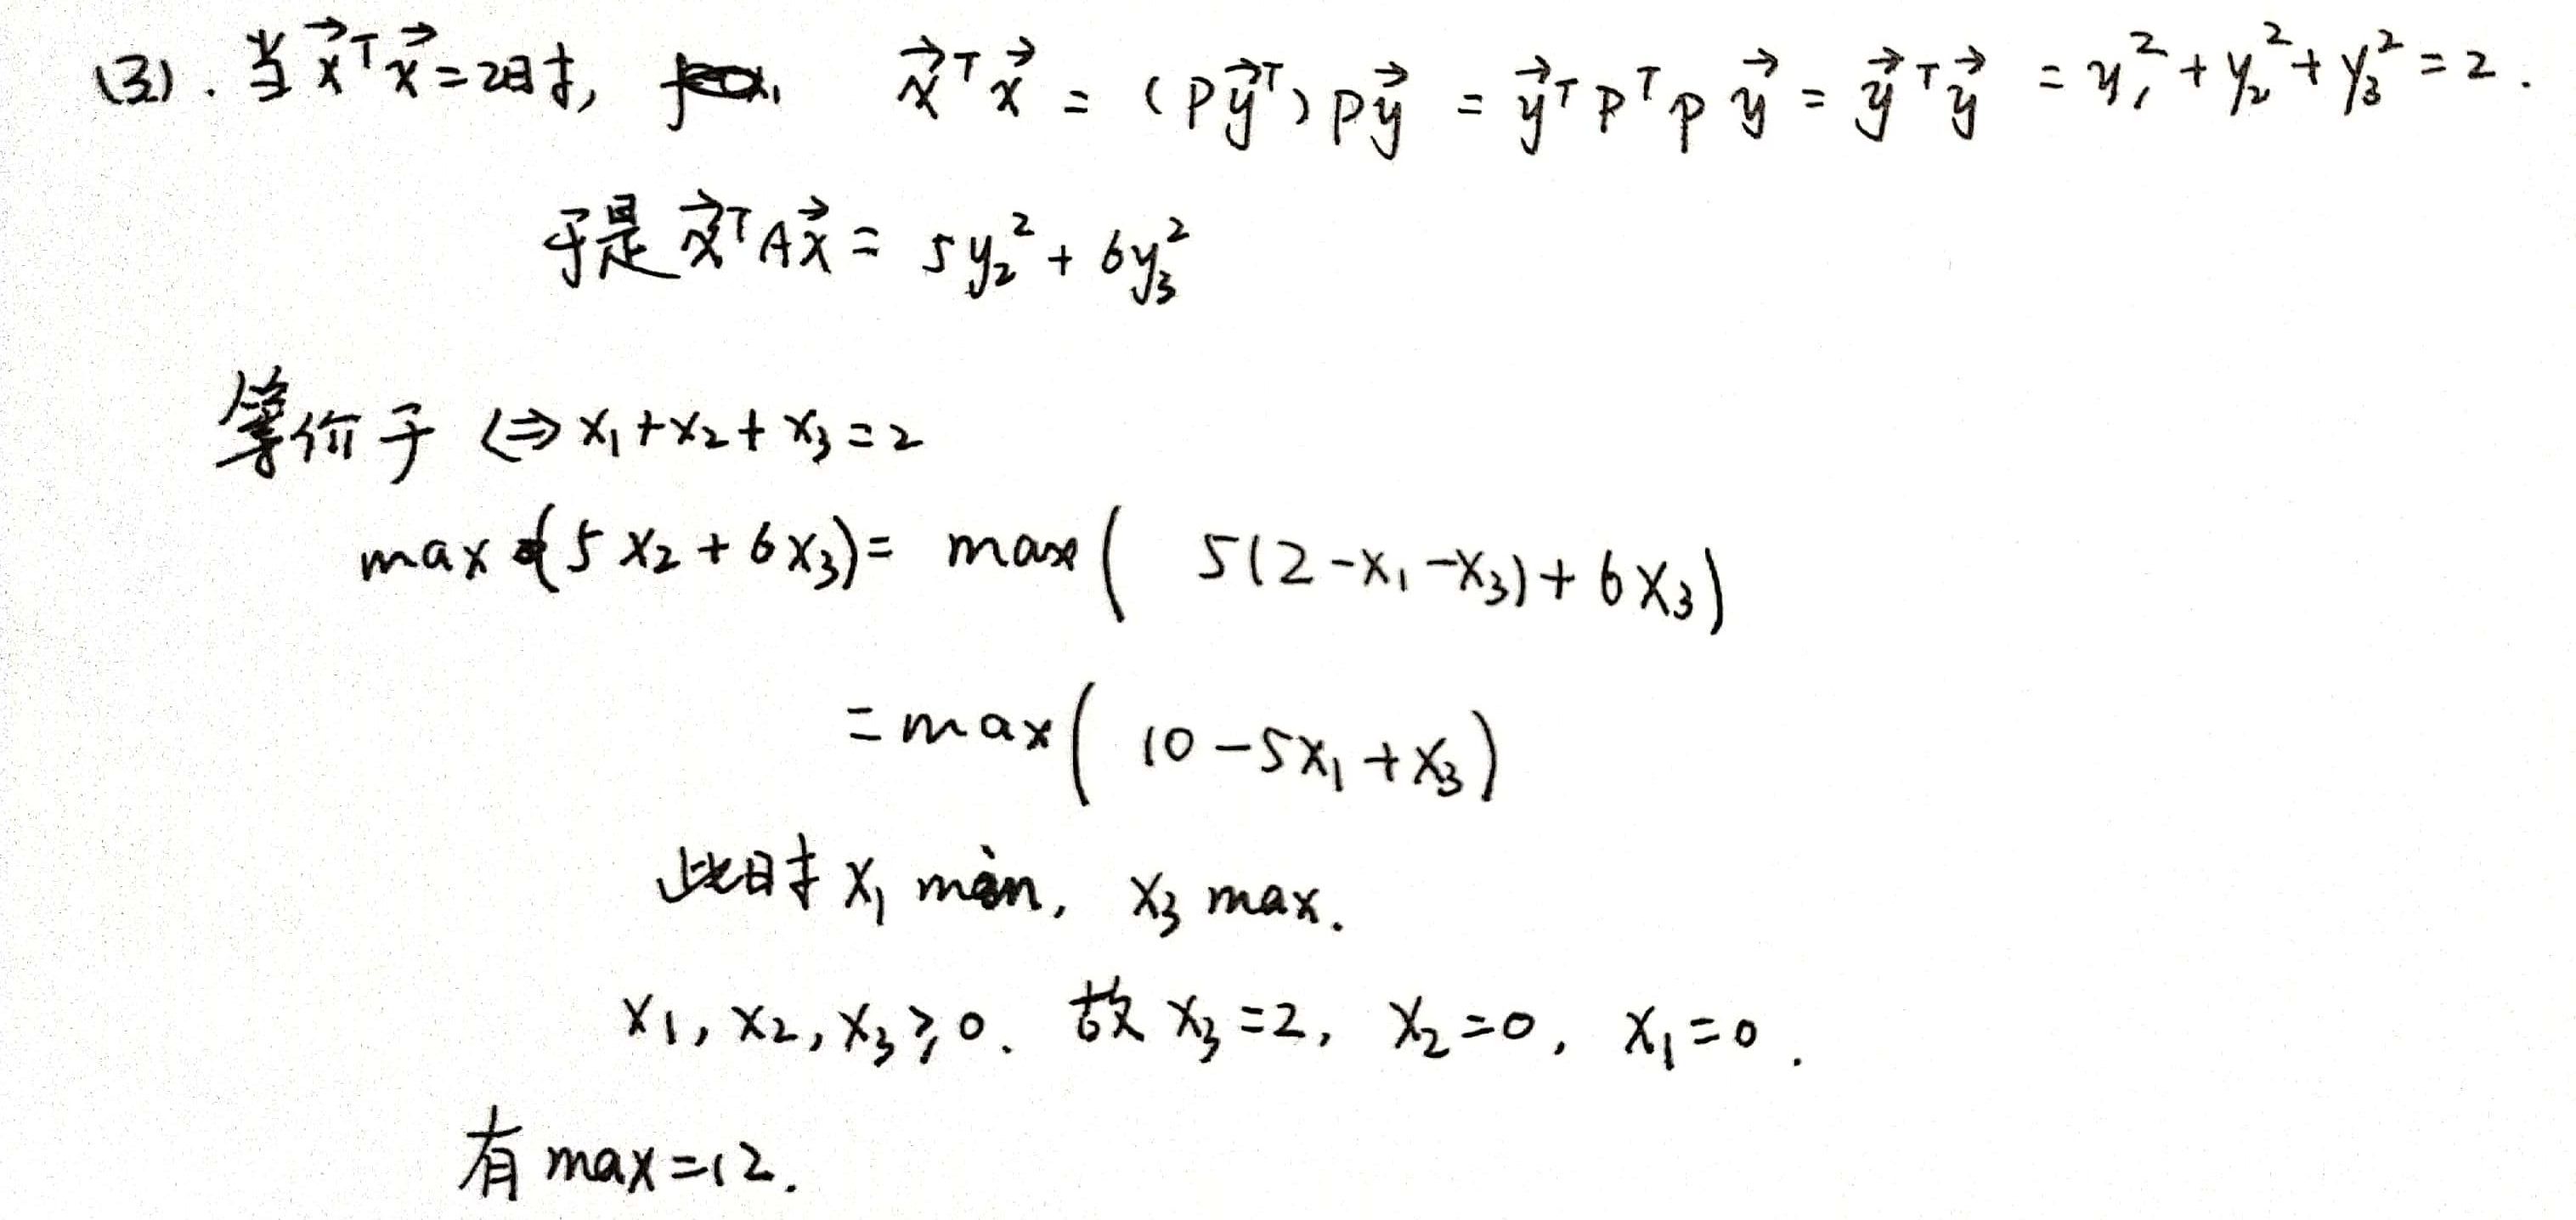 (3). 当 x⃗ᵀx⃗=2时, x⃗ᵀx⃗ = (Py⃗ᵀ)Py⃗ = y⃗ᵀPᵀPy⃗ = y⃗ᵀy⃗ = y₁²+y₂²+y₃²=2.
于是 x⃗ᵀAx⃗ = 5y₂²+6y₃²
等价于 ⇔ x₁+x₂+x₃=2
max(5x₂+6x₃)= max( 5(2-x₁-x₃)+6x₃)
=max( 10-5x₁+x₃)
此时 x₁ min, x₃ max.
x₁, x₂, x₃⩾0. 故 x₃=2, x₂=0, x₁=0.
有 max=12.